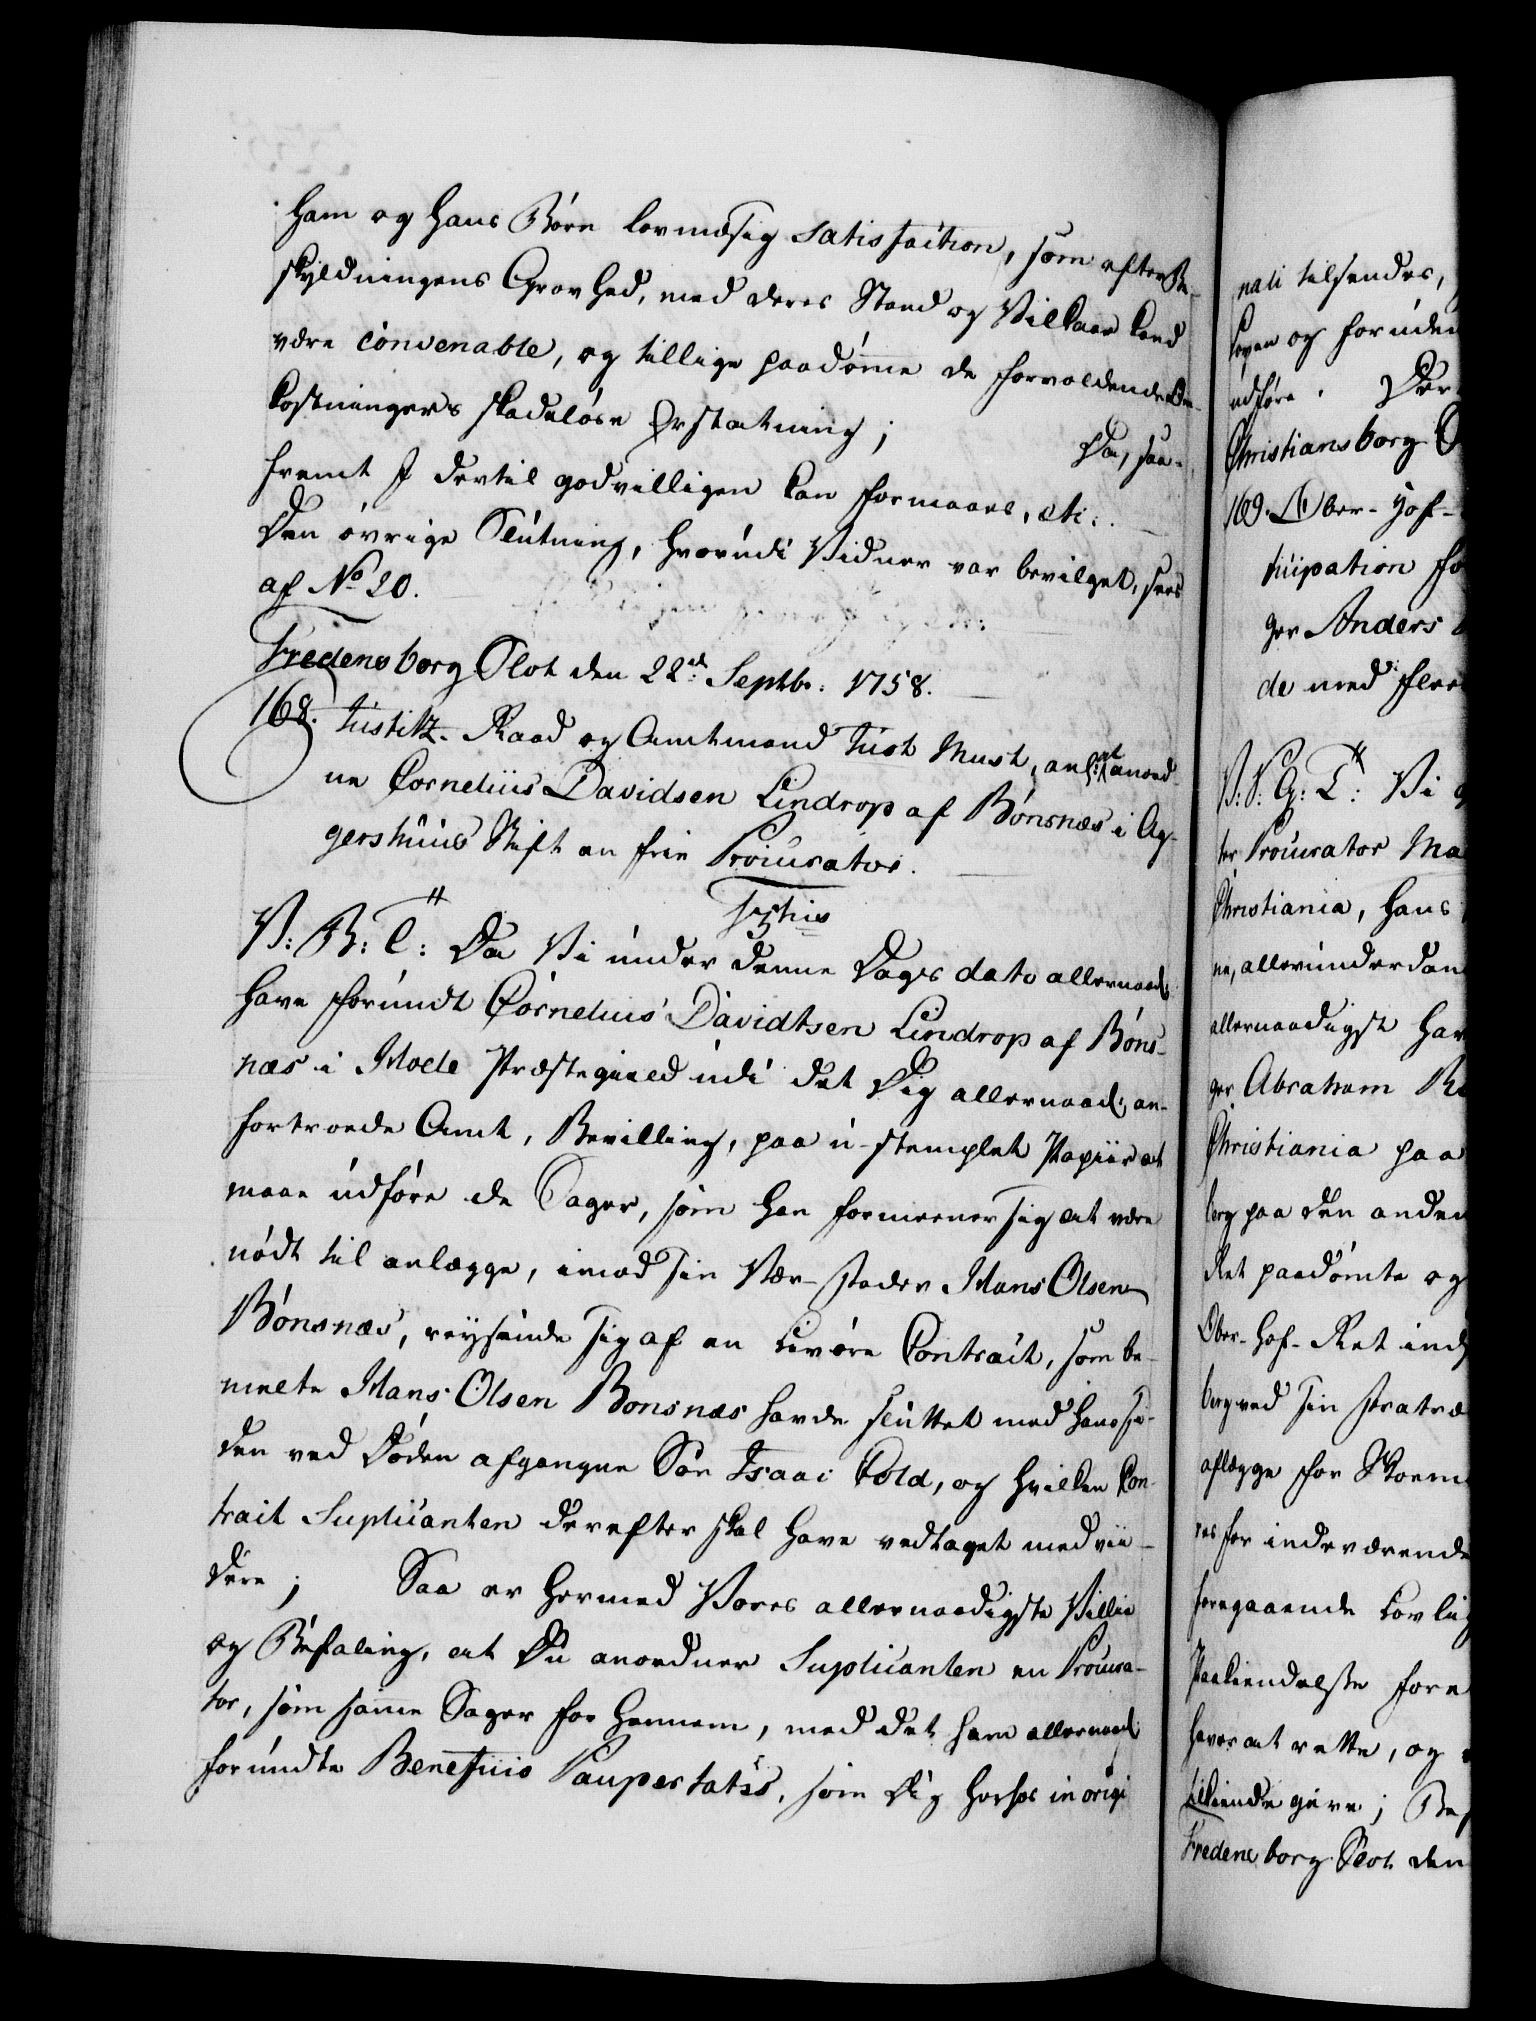 ham og hans Børn lovmæsig Satisfaction, som efter Be-
skyldningens Grovhed, med deres Stand og Vilkaar kand
være convenable, og tillige paadømme de forvoldende Be-
kostningers skadesløse Erstatning; Da, saa-
fremt I dertil godvilligen kan formaaes, etc:
Den øvrige Slutning, hvorudi Vidner var bevilget, sees
af No 20.
Fredensborg Slot den 22de Septbr: 1758.
168. Justitz-Raad og Amtmand Just Must, anl: at anord-
ne Cornelius Davidsen Lindrop af Bönsnæs i Ag-
gershuus Stift en frie Procurator.
V: B: C: Da Vi under Denne Dags dato allernaad:
have forundt Cornelius Davidtsen Lindrop af Böns-
næs i Hoele Præstegield udi det Dig allernaad: an-
fortroede Amt, Bevilling, paa u-stemplet Papiir at
maae udföre de Sager, som han formeener sig at være
nödt til anlægge, imod sin Vær-fader Hans Olsen
Bönsnæs, reysende sig af en Livöre Contract, som be-
melte Hans Olsen Bonsnæs havde sluttet med hans si-
den ved Døden afgangne Søn Isaac Cold, og hvilken Con-
tract Suplicanten derefter skal have vedtaget med vii-
dere; Saa er hermed Vores allernaadigste Villie
og Befaling, at Du anordner Suplicanten en Procura-
tor, som samme Sager for hannem, med det ham allernaad:
forundte Beneficio Paupertatis, som Dig herhos in origi
nali tilsendes,
Loven og foruden
udføre. Der
Christiansborg
169. Ober-Hof-
ticipation for
ger Anders
de med fleer
V: V: G: T: Vi
ter Procurator Ma
Christiania, hans
ne, allerunderdan
allernaadigst har
ger Abraham
Christiania paa
berg paa den anden
Ret paadömte og
Ober-Hof-Ret ind
berg ved sin
aflægge for
res for indeværende
foregaaende Lovlig
Paakiendelse fore
haver at rette, og
tilkiende give; Bef
Fredensborg Slot den